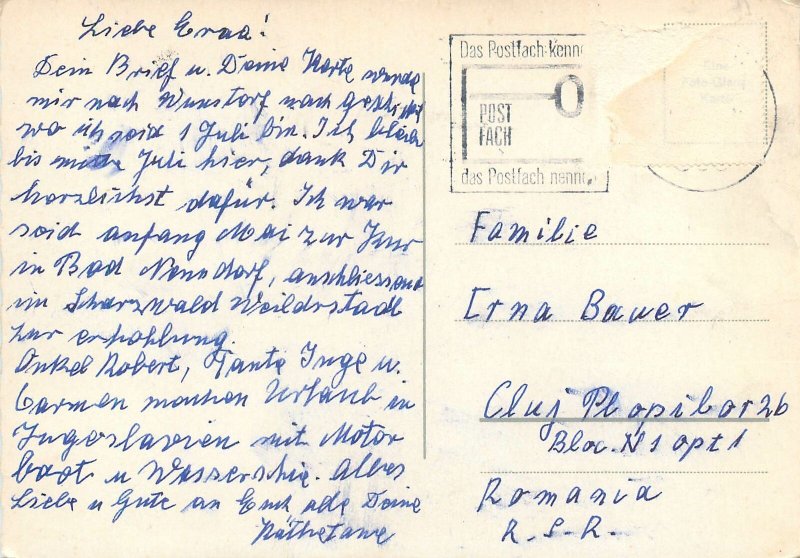 Liebe Erna!
Dein Brief u. Deine Karte wurde
mir nach Wunstorf nach geschickt
wo ich seid 1 Juli bin. Ich bleibe
bis mitte Juli hier, dank Dir
herzlichst dafür. Ich war
seid anfang Mai zur Kur
in Bad Nenndorf, anschliessend
im Scharzwald Weilderstadt
zur erhohlung.
Onkel Robert, Tante Inge u.
Carmen machen Urlaub in
Jugoslavien mit Motor
boot u Wasserschie. Alles
Liebe u Gute an Euch alle Deine
Das Postfach kenn
POST
FACH
das Postfach nenn
Familie
Erna Bauer
Cluj Pt. 26
Bloc. N1 opt 1
Romania
R. S. R.